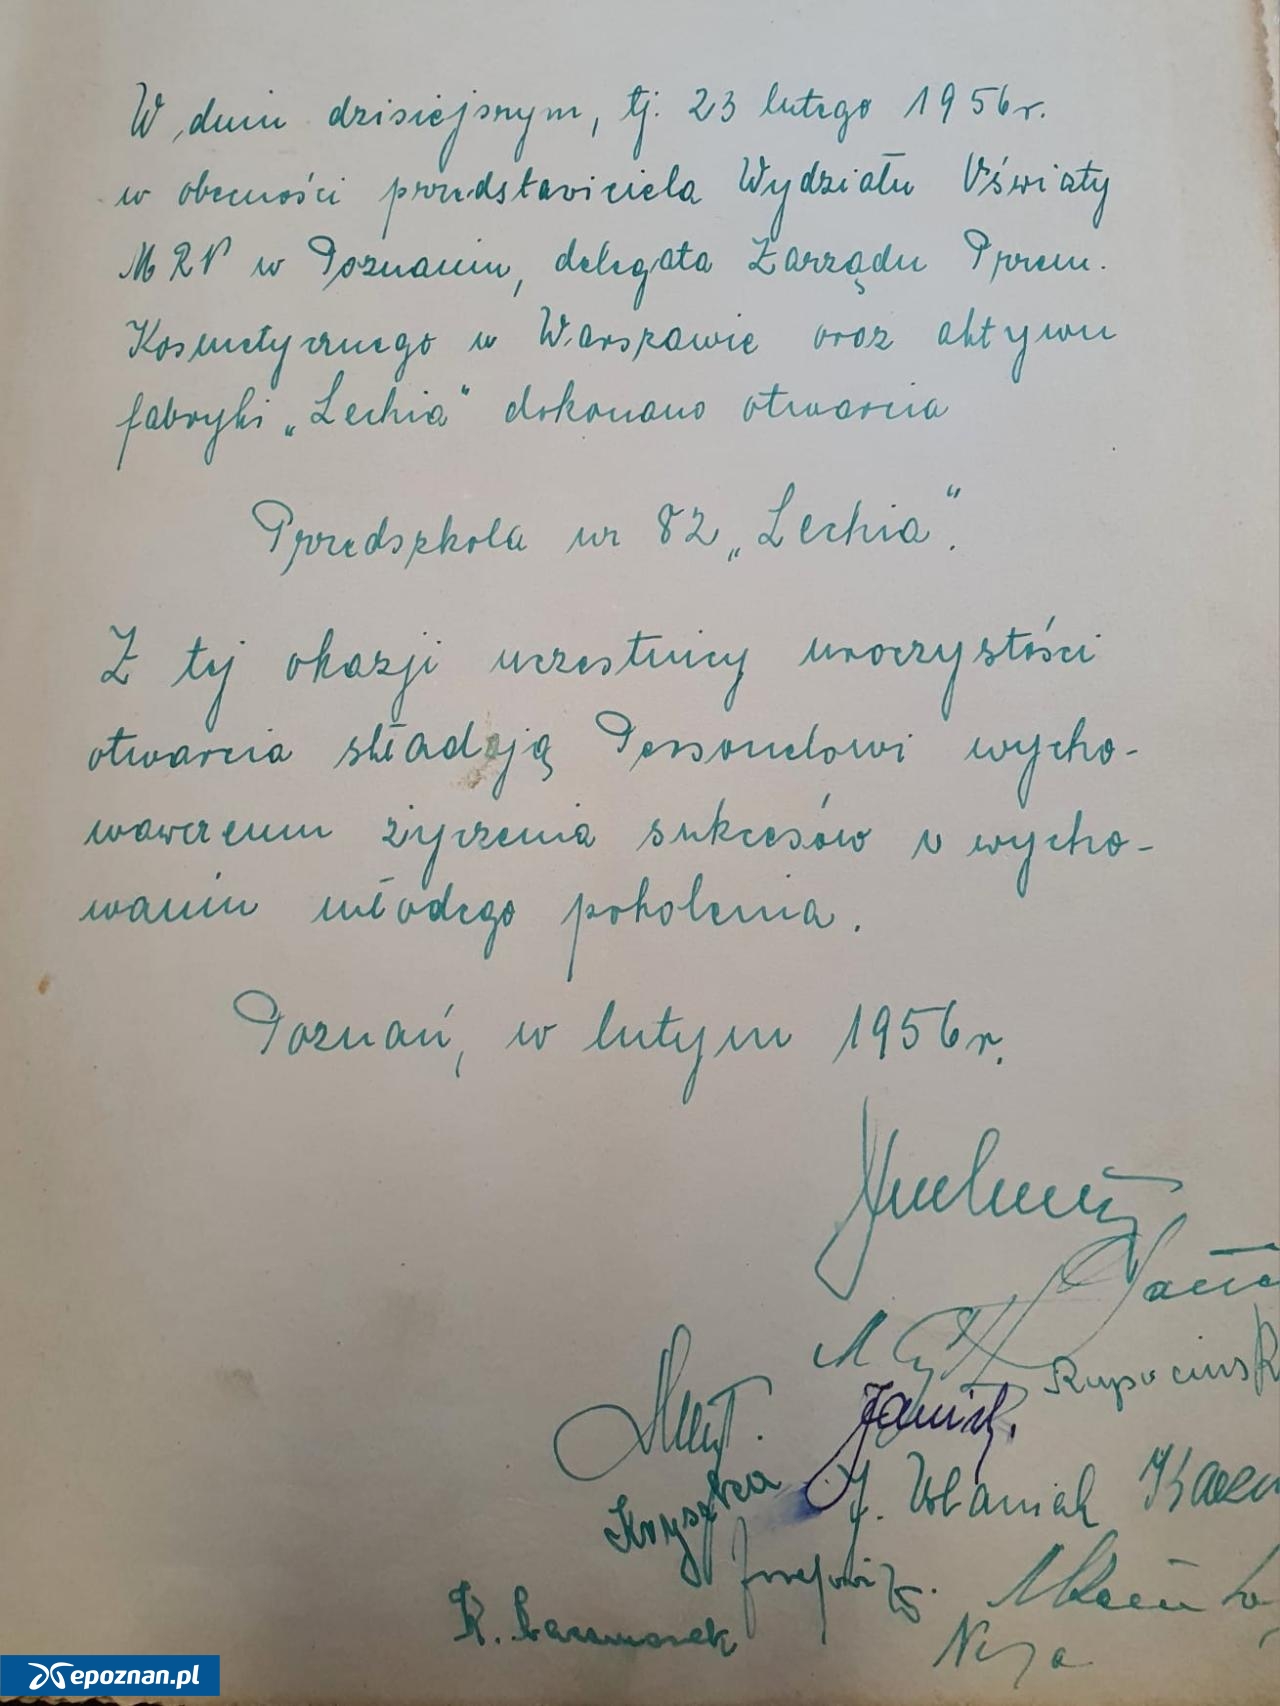 W dniu dzisiejszym, tj. 23 lutego 1956 r.
w obecności przedstawiciela Wydziału Oświaty
MRN w Poznaniu, delegata Zarządu Przem.
Kosmetycznego w Warszawie oraz aktywu
fabryki „Lechia" dokonano otwarcia
Przedszkola nr 82 „Lechia".
Z tej okazji uczestnicy uroczystości
otwarcia składają Personelowi wycho-
wawczemu życzenia sukcesów w wycho-
waniu młodego pokolenia.
Poznań, w lutym 1956 r.
Janick.
Kryszka
J. Urbaniak
Józefowicz.
epoznan.pl